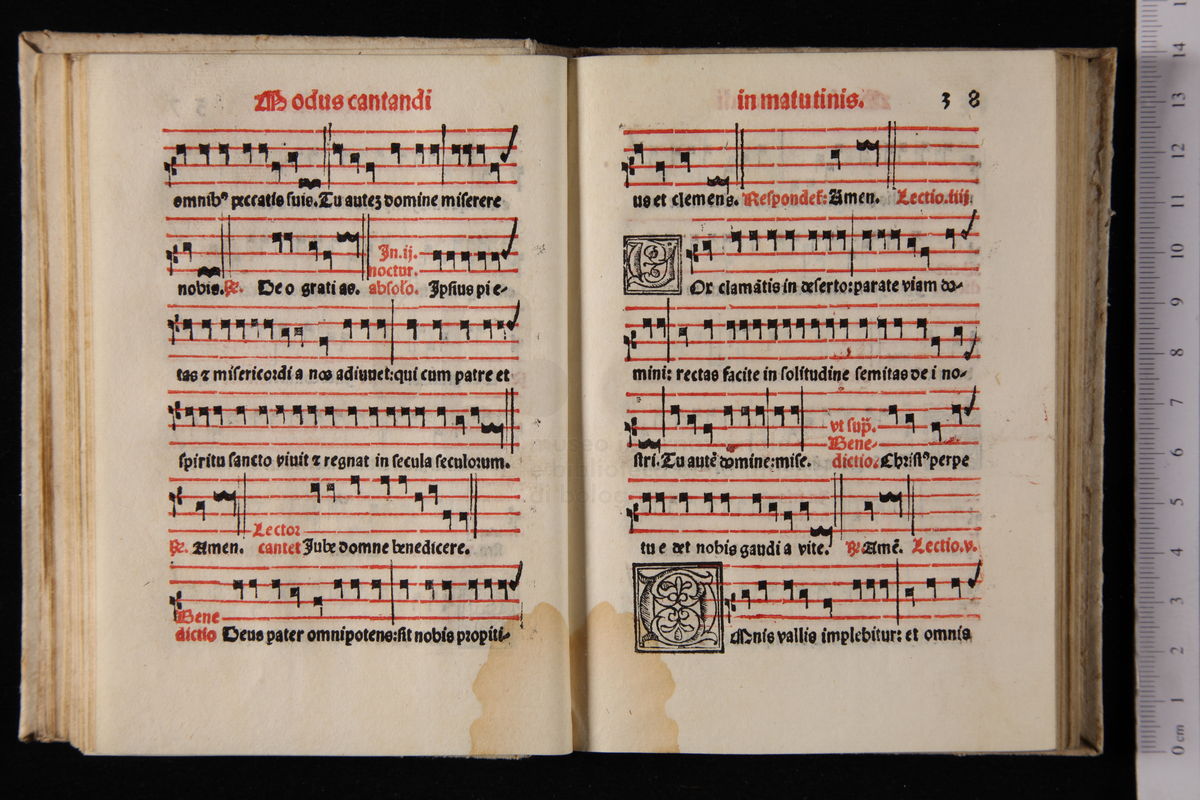 Modus cantandi
omnibꝰ peccatis suis. Tu autez domine miserere
nobis. ℟. Deo gratias. In.ij. noctur. absolo. Ipsius pie-
tas ⁊ misericordia nos adiuuet: qui cum patre et
spiritu sancto viuit ⁊ regnat in secula seculorum.
℟. Amen. Lector cantet Jube domne benedicere.
Bene dictio Deus pater omnipotens: sit nobis propiti-
in matutinis. 38
us et clemens. Respondet: Amen. Lectio.iiij.
Vox clamātis in deserto: parate viam do-
mini: rectas facite in solitudine semitas dei no-
stri. Tu autē domine: mise. vt sup. Bene- dictio. Christꝰ perpe
tue det nobis gaudia vite. ℟. Amē. Lectio.v.
OMnis vallis implebitur: et omnis
0 cm 1 2 3 4 5 6 7 8 9 10 11 12 13 14